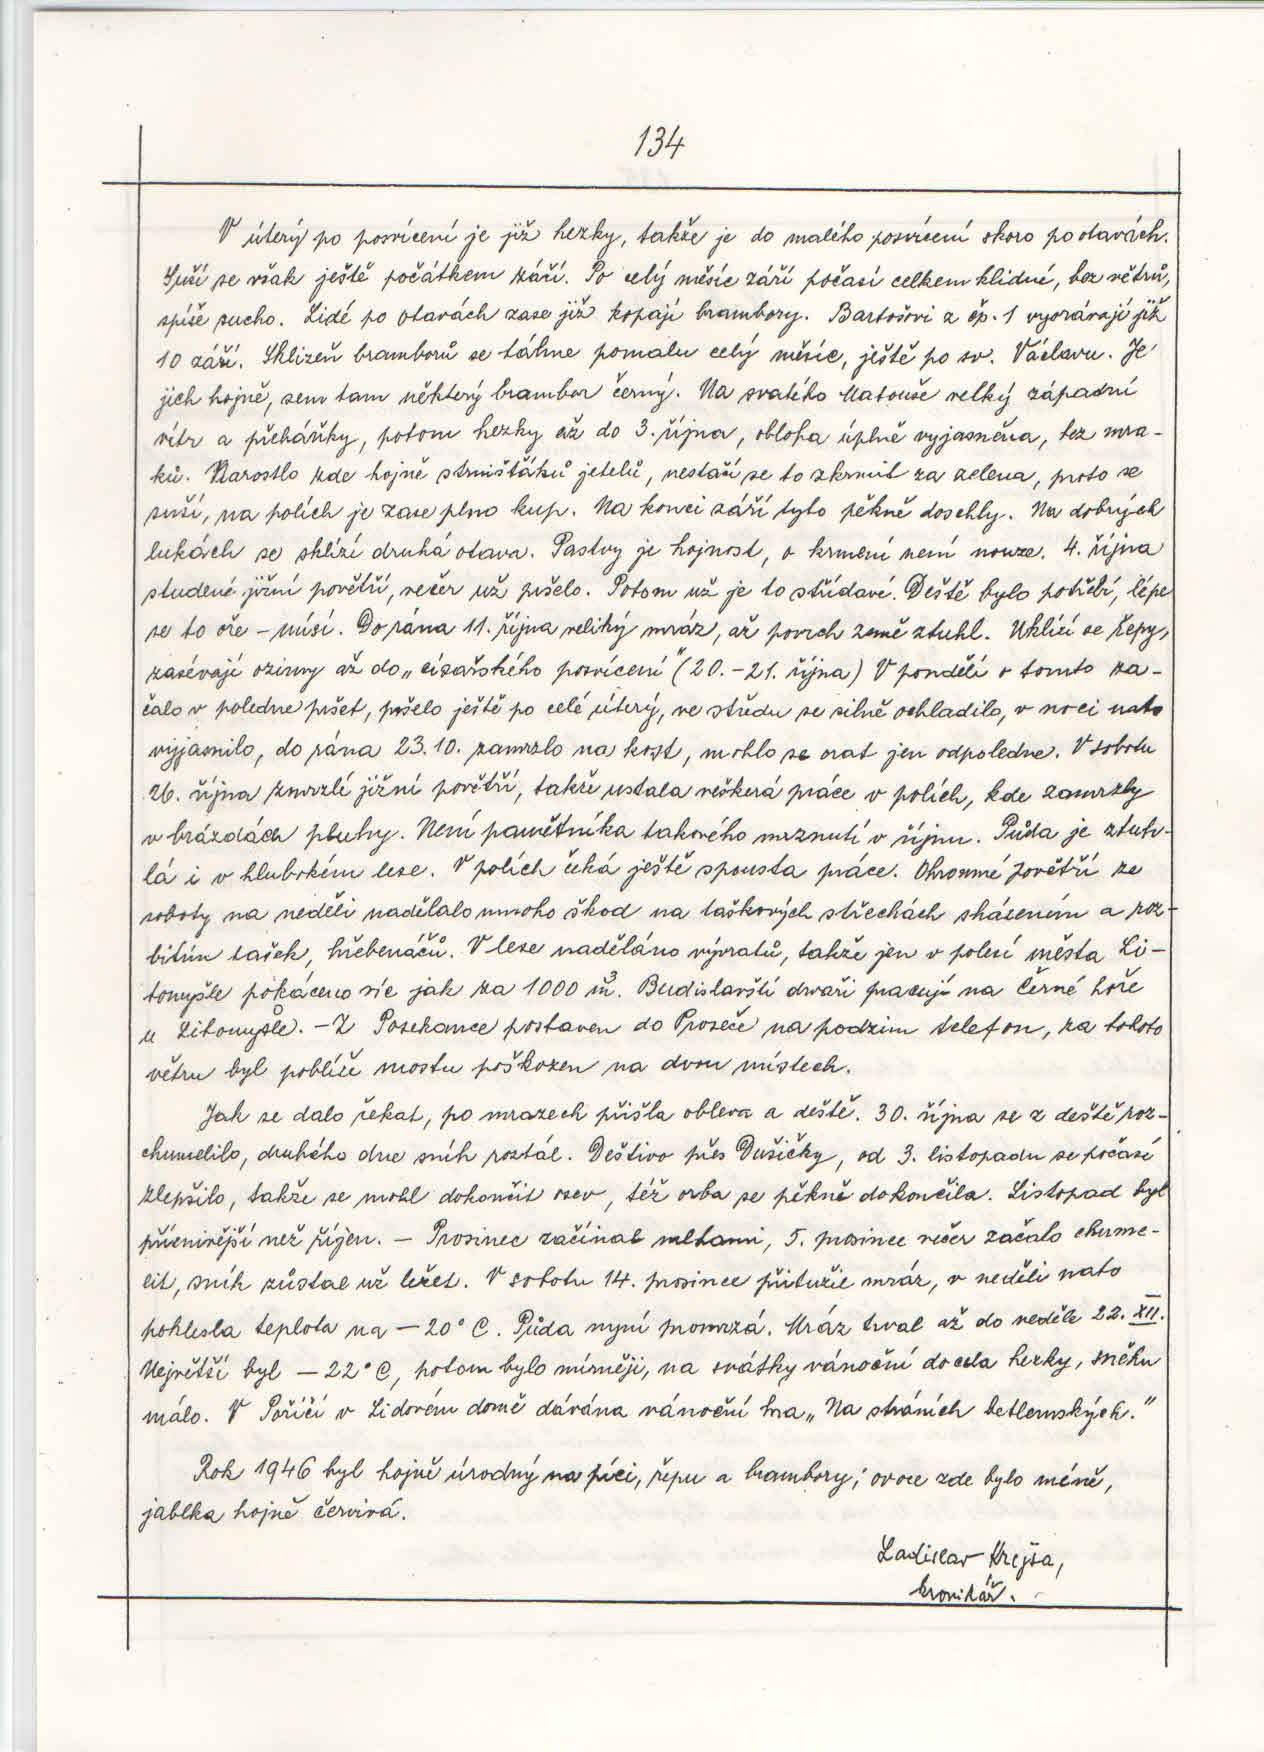 134
V úterý po posvícení je již hezky, takže je do malého posvícení skoro po otavách.
Suší se však ještě počátkem září. Po celý měsíc září počasí celkem klidné, bez větrů,
spíše sucho. Lidé po otavách zase již kopají brambory. Bartošovi z čp. 1 vyorávají již
10 září. Sklizeň bramborů se táhne pomalu celý měsíc, ještě po sv. Václavu. Je
jich hojně, sem tam některý brambor černý. Na svatého Matouše velký západní
vítr a přeháňky, potom hezky až do 3. října, obloha úplně vyjasněna, bez mra-
ků. Narostlo zde hojně strništáků jetelů, nestačí se to zkrmit za zelena, proto se
suší, na polích je zase plno kup. Na konci září tyto pěkně doschly. Na dobrých
lukách se sklízí druhá otava. Pastvy je hojnost, o krmení není nouze. 4. října
studené jižní povětří, večer už pršelo. Potom už je to střídavé. Deště bylo potřebí, lépe
se to oře - místí. Do rána 11. října veliký mráz, až povrch země ztuhl. Uklízí se řepy,
zasévají ozimy až do „císařského posvícení" (20.-21. října) V pondělí o tomto za-
čalo v poledne pršet, pršelo ještě po celé úterý, ve středu se silně ochladilo, v noci nato
vyjasnilo, do rána 23.10. zamrzlo na kost, mohlo se orat jen odpoledne. V sobotu
26. října zmrzlé jižní povětří, takže ustala veškerá práce v polích, kde zamrzly
v brázdách pluhy. Není pamětníka takového mrznutí v říjnu. Půda je ztuh-
lá i v hlubokém lese. V polích čeká ještě spousta práce. Ohromné povětří ze
soboty na neděli nadělalo mnoho škod na taškových střechách sházením a roz-
bitím tašek, hřebenáčů. V lese naděláno vývratů, takže jen v polesí města Li-
tomyšle pokáceno víc jak za 1000 m³. Budislavští dvaři pracují na Černé hoře
u Litomyšle. - Z Posekance postaven do Proseče na podzim telefon, za tohoto
větru byl poblíže mostu poškozen na dvou místech.
Jak se dalo čekat, po mrazech přišla obleva a deště. 30. října se z deště roz-
chumelilo, druhého dne sníh roztál. Deštivo přes Dušičky, od 3. listopadu se počasí
zlepšilo, takže se mohl dokončit osev, též orba se pěkně dokončila. Listopad byl
příznivější než říjen. - Prosinec začínal mlhami, 5. prosince večer začalo chume-
lit, sníh zůstal už ležet. V sobotu 14. prosince přitužil mráz, v neděli nato
poklesla teplota na - 20° C. Půda nyní promrzá. Mráz trval až do neděle 22. XII.
Největší byl - 22° C, potom bylo mírněji, na svátky vánoční docela hezky, sněhu
málo. V Poříčí v Lidovém domě dávána vánoční hra „Na stráních betlemských."
Rok 1946 byl hojně úrodný na píci, řepu a brambory; ovoce zde bylo méně,
jablka hojně červivá.
Ladislav Krejsa,
kronikář.